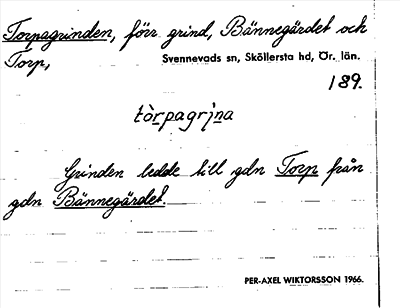 Torpagrinden, förr grind, Bännegärdet och
Torp, Svennevads sn, Sköllersta hd, Ör. län.
189.
tòrpagrįna
Grinden ledde till gdn Torp från
gdn Bännegärdet.
PER-AXEL WIKTORSSON 1966.